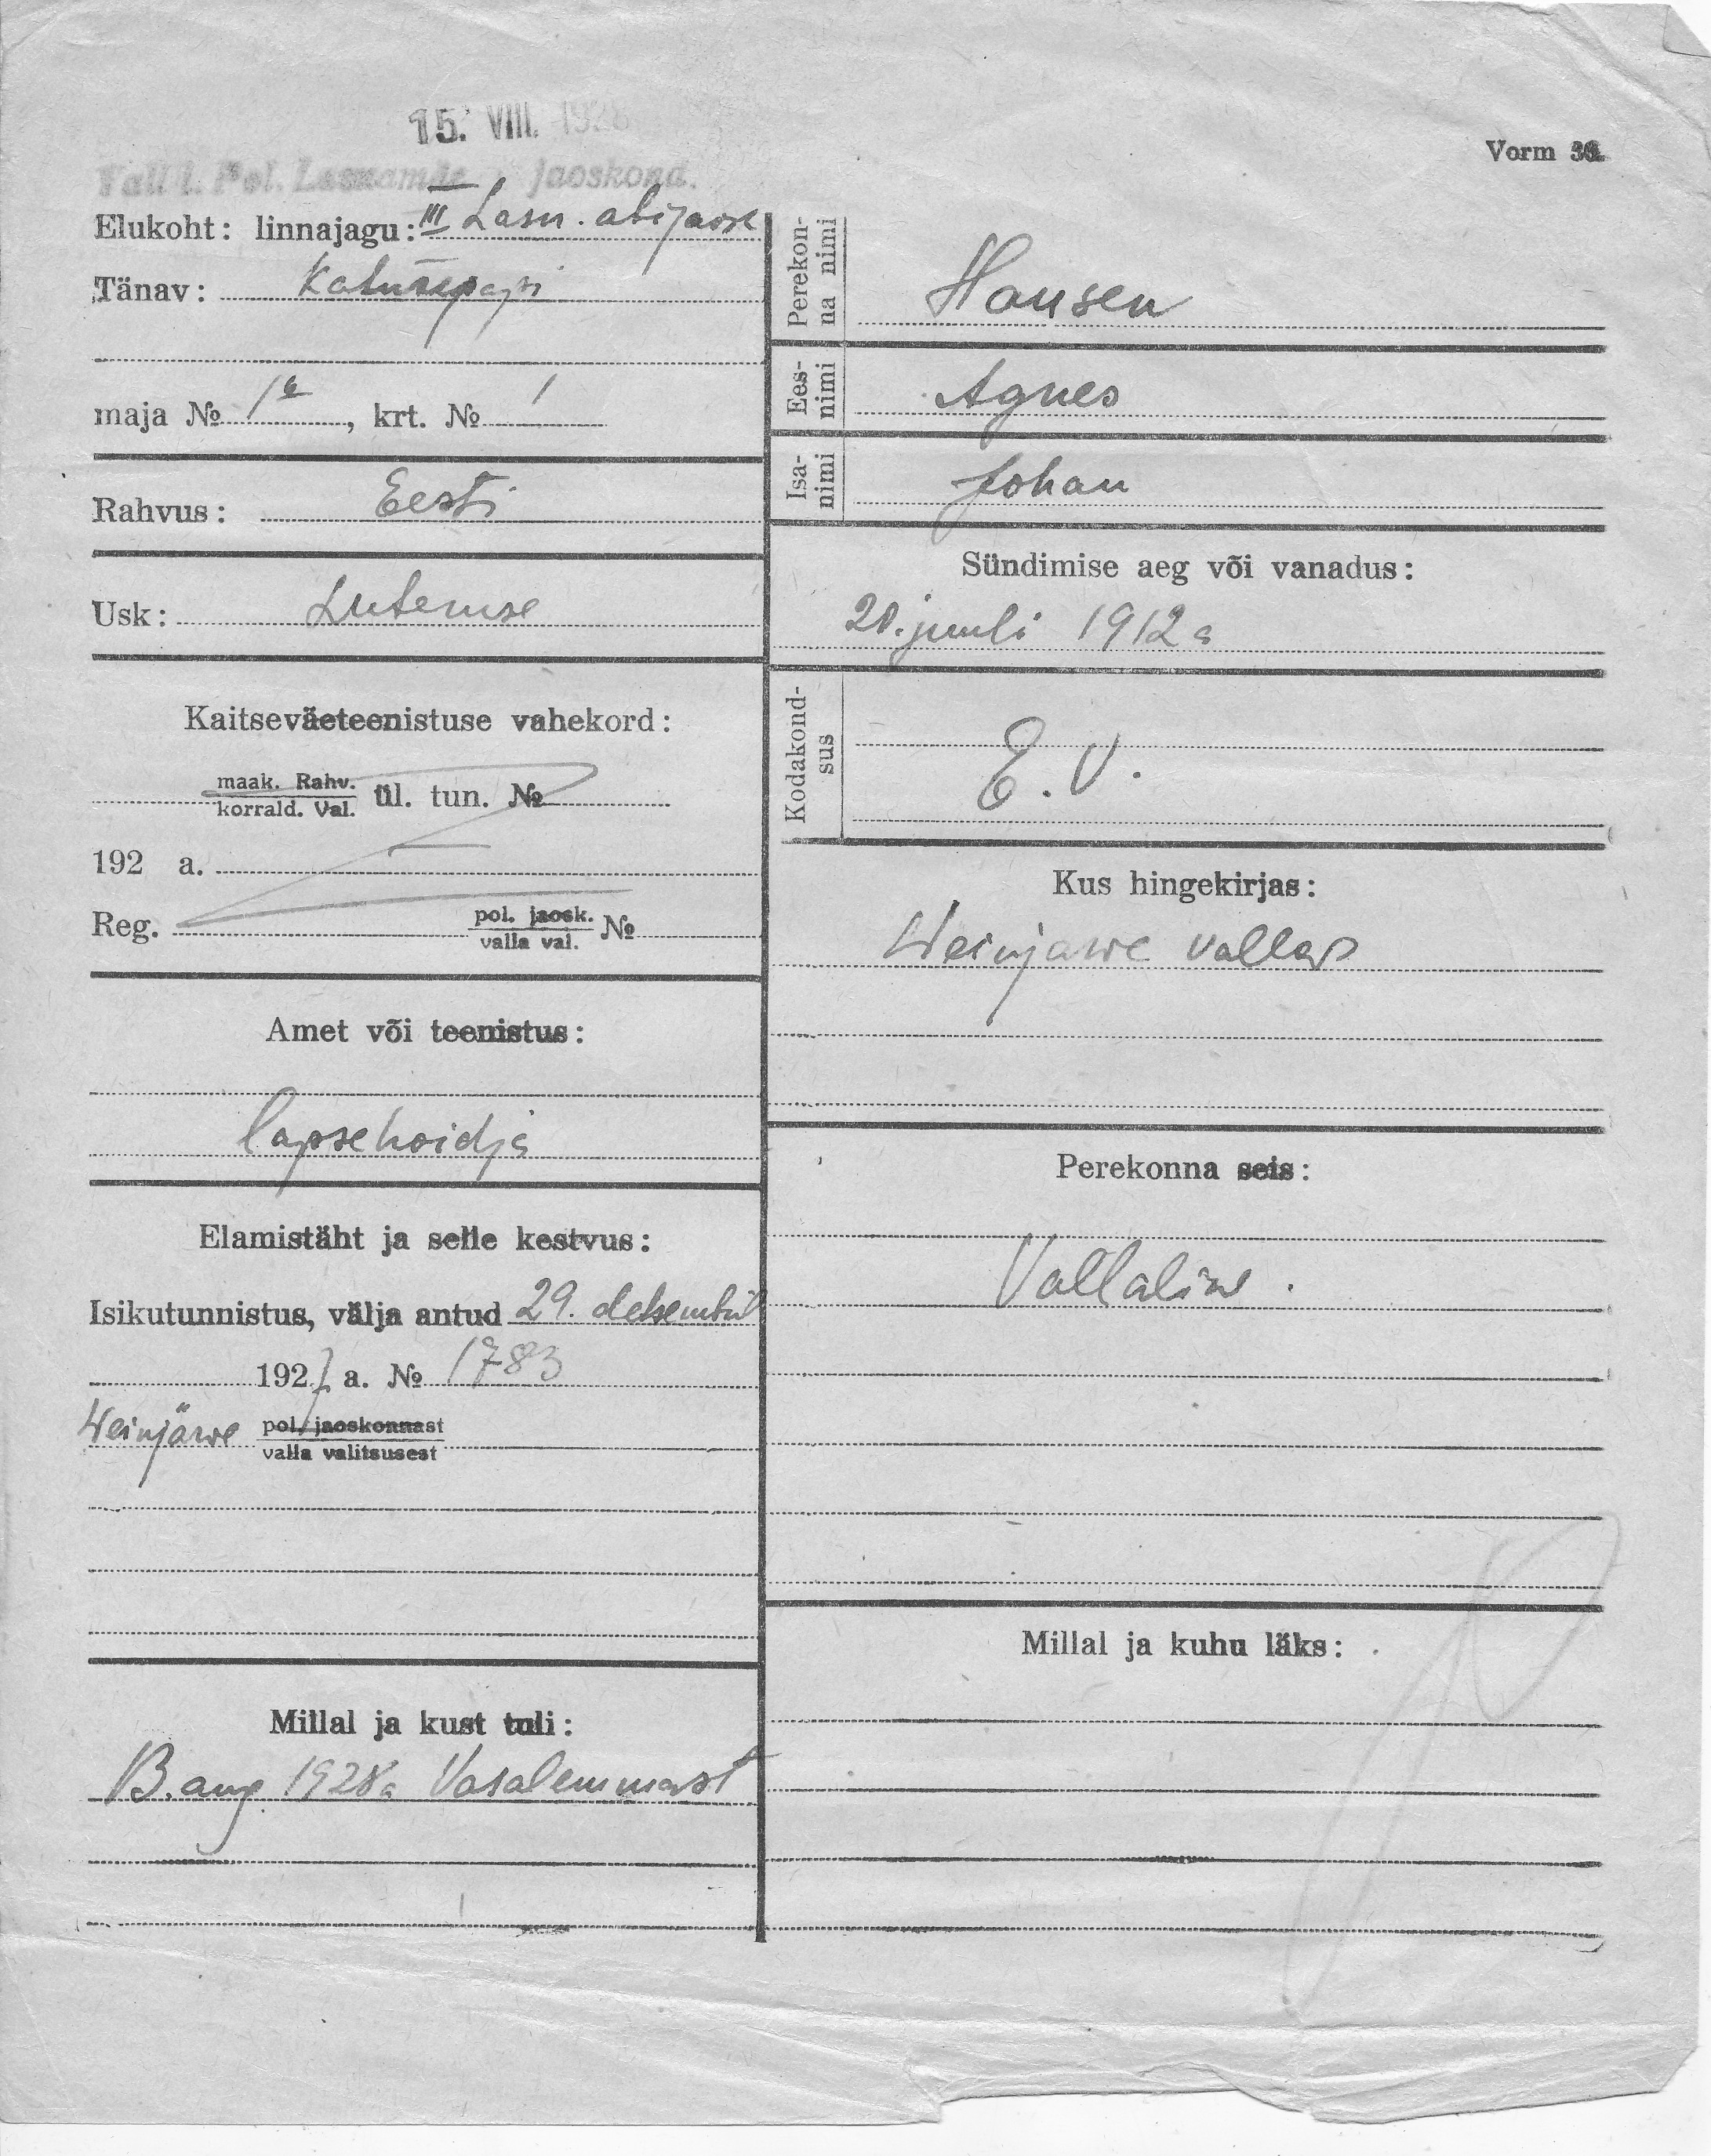 15. VIII. 1928
Tall l. Pol. Lasnamäe jaoskond.
Vorm
Elukoht: linnajagu: III Lasn. abijaosk
Tänav: Katusepapi
maja № 1a, krt. № 1
Rahvus: Eesti
Usk: Luteruse
Kaitseväeteenistuse vahekord:
maak. Rahv.
korrald. Val. ül. tun. №
192 a.
Reg. pol. jaosk.
valla val. №
Amet või teenistus:
lapsehoidja
Elamistäht ja selle kestvus:
Isikutunnistus, välja antud 29. detsembril
1927 a. № 1783
Weinjärwe pol. jaoskonnast
valla valitsusest
Millal ja kust tuli:
13. aug. 1928a Vasalemmast
Perekon-
na nimi
Hansen
Ees-
nimi
Agnes
Isa-
nimi
Johan
Sündimise aeg või vanadus:
20. juuli 1912 a
Kodakond-
sus
E.V.
Kus hingekirjas:
Weinjarwe vallas
Perekonna seis:
Vallaline.
Millal ja kuhu läks: